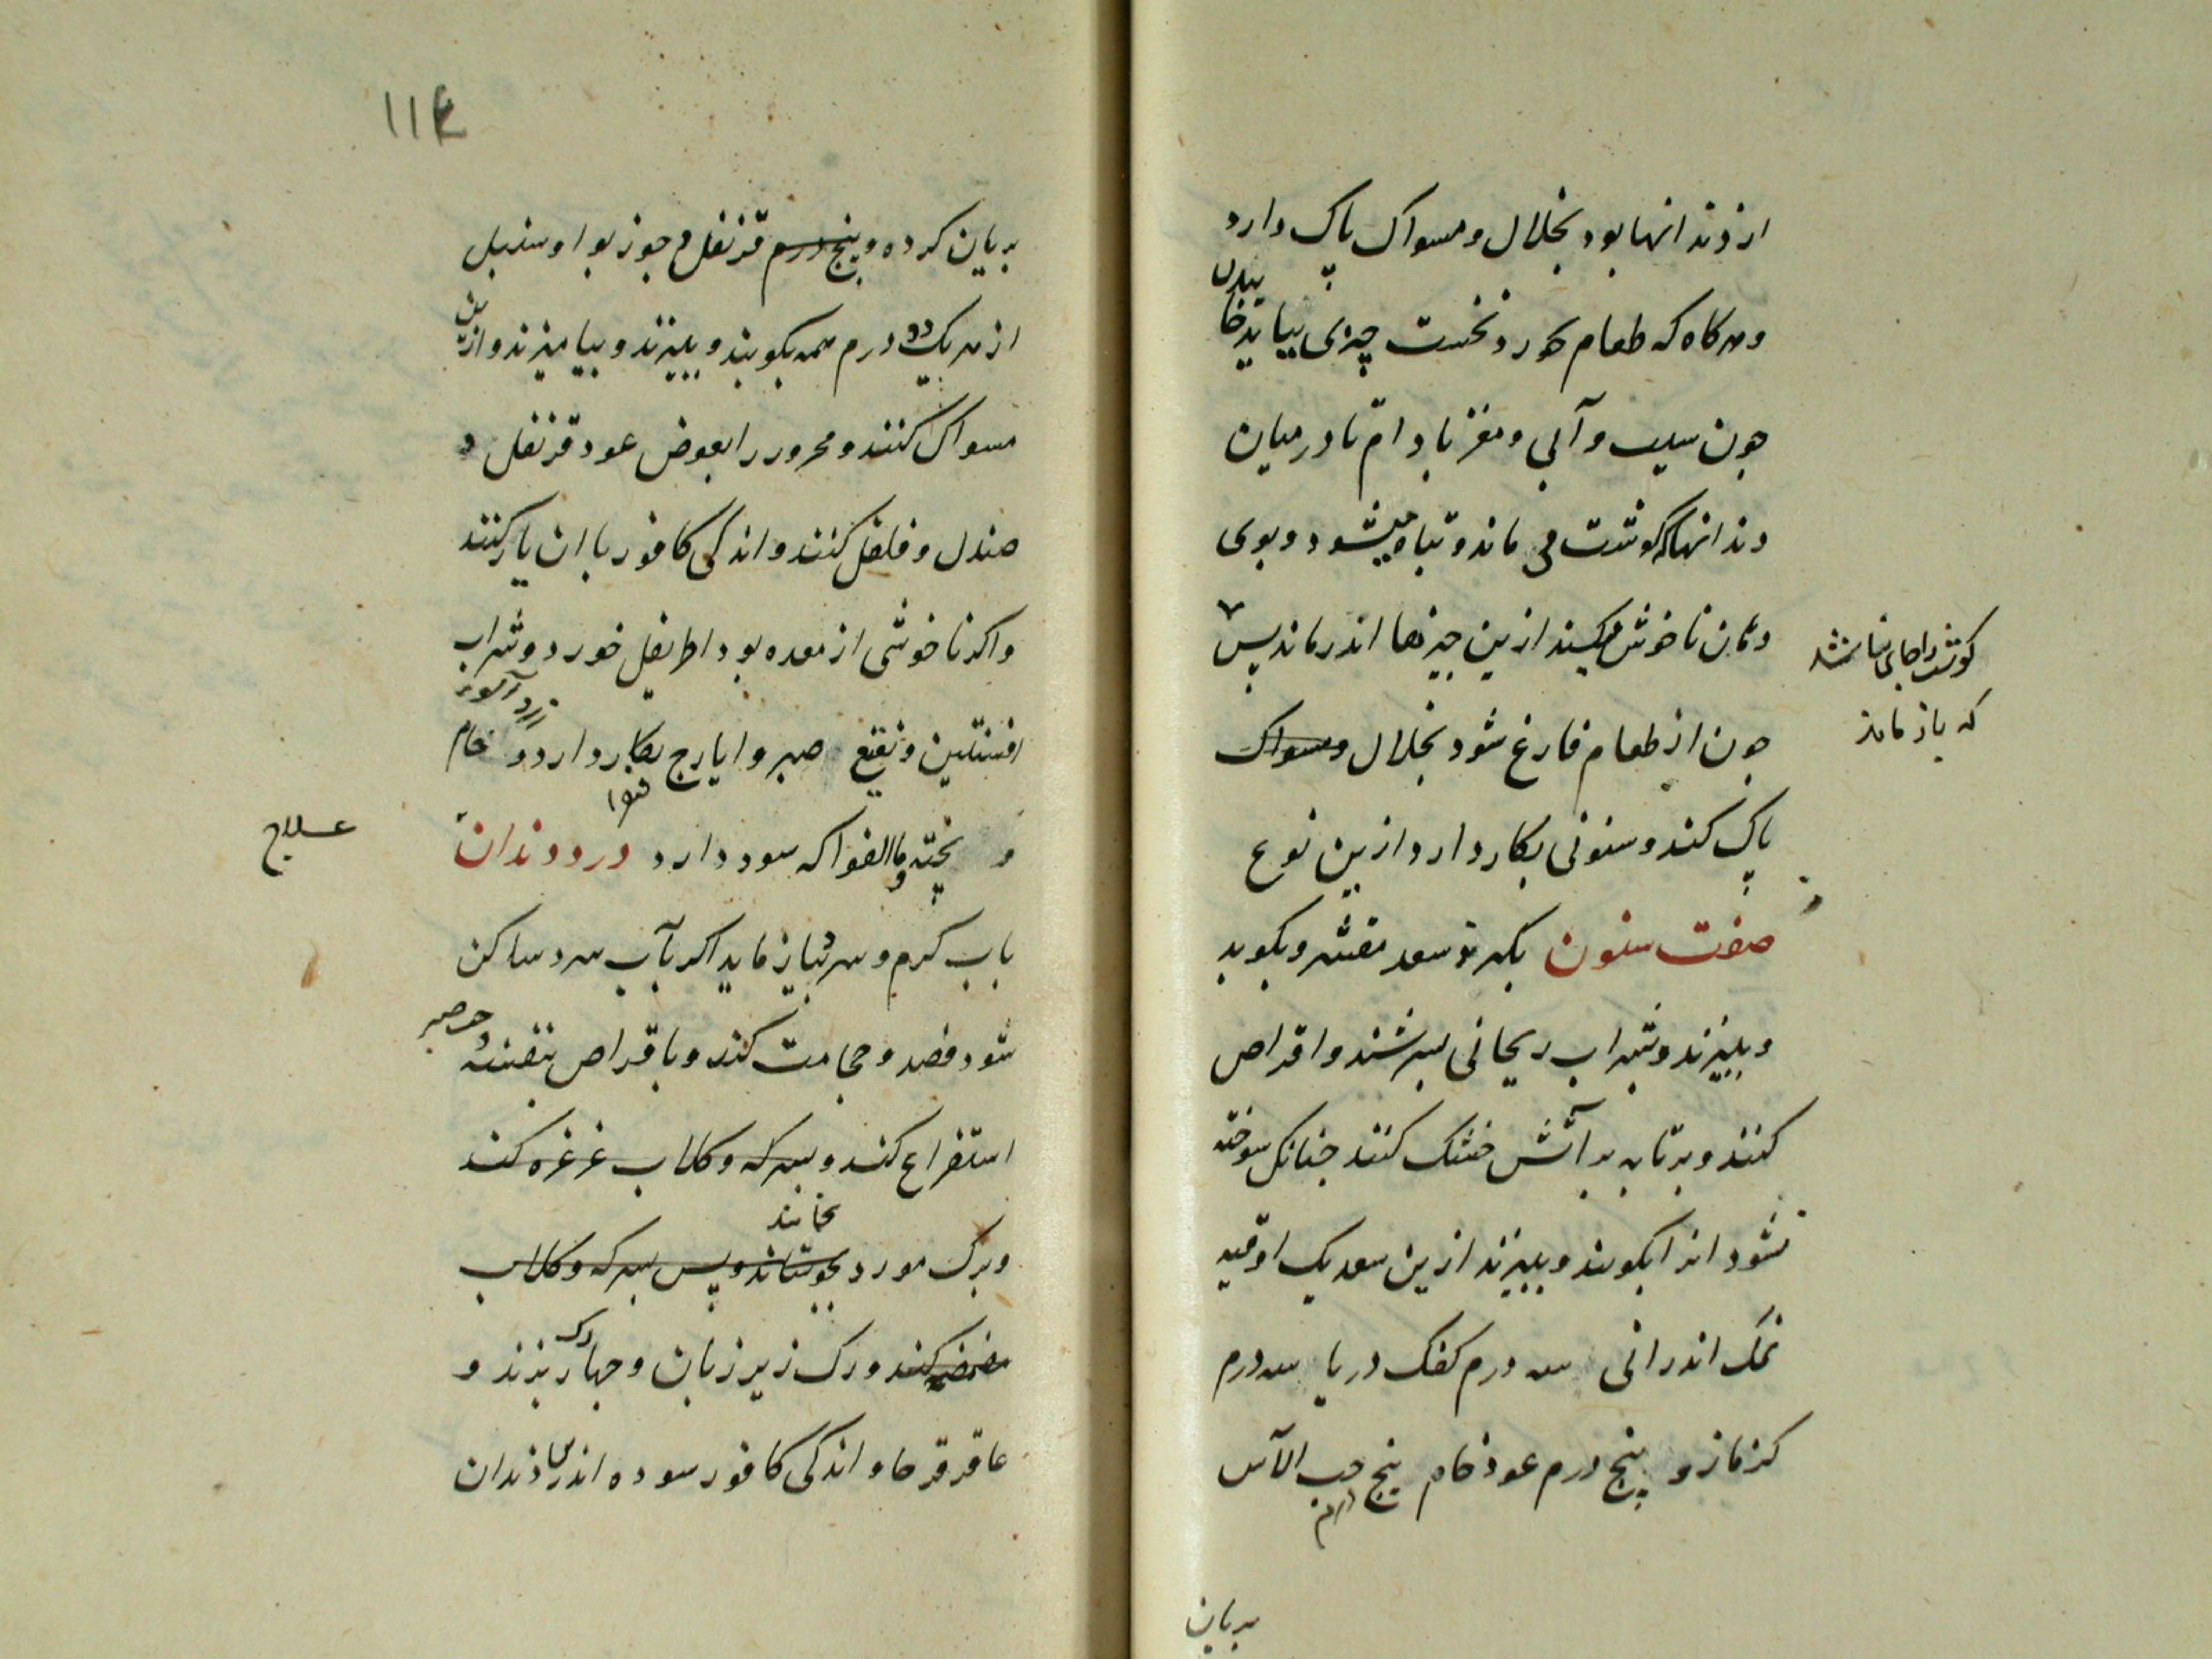 از دندانها بود بخلال و مسواک پاک دارد
وهرکاه که طعام خورد نخست چیزی بباید خا
ئیدن
چون سیب و آبی و مغز بادام تا در میان
دندانها که گوشت می ماند و تباه میشود و بوی
دهان ناخوش میکند ازین چیزها اندر ماند پس
گوشت را جای نباشد
که باز ماند
چون از طعام فارغ شود بخلال و مسواک
پاک کند و سنونی بکار دارد ازین نوع
صفت سنون بگیرند سعد مقشر و بکوبد
و ببیزند و بشراب ریحانی بسرشند و اقراص
کنند و بر تابه بر آتش خشک کنند چنانکه سوخته
نشود انرا بکوبند و ببیزند ازین سعد یک اوقیه
نمک اندرانی سه درم کفک دریا سه درم
کزمازو پنج درم عود خام پنج درم حب الآس
بریان
۱۱۴
بریان کرده و پنج درم قرنفل و جوز بوا و سنبل
از هر یک دو درم همه بکوبند و ببیزند و بیامیزند و ازین
مسواک کنند و محرور را بعوض عود قرنفل و
صندل و فلفل کنند و اندکی کافور با ان یار کنند
واکر ناخوشی از معده بود اطریفل خورد و شراب
افسنتین و نقیع صبر و ایارج فیقرا بکار دارد و خام
زرد آلو
و پخته و ماالفواکه سود دارد درد دندان
علاج
باب کرم و سرد بیازماید اکر بآب سرد ساکن
شود فصد و حجامت کند و باقراص بنفشه و حب صبر
استفراغ کند و بسرکه و کلاب غرغره کند
و برک مورد بخایند بجوشاند و پس بسرکه و کلاب
مضمضه کند و رک زیر زبان و چهار رک بزند و
عاقرقرحا و اندکی کافور سوده اندر میان دندان